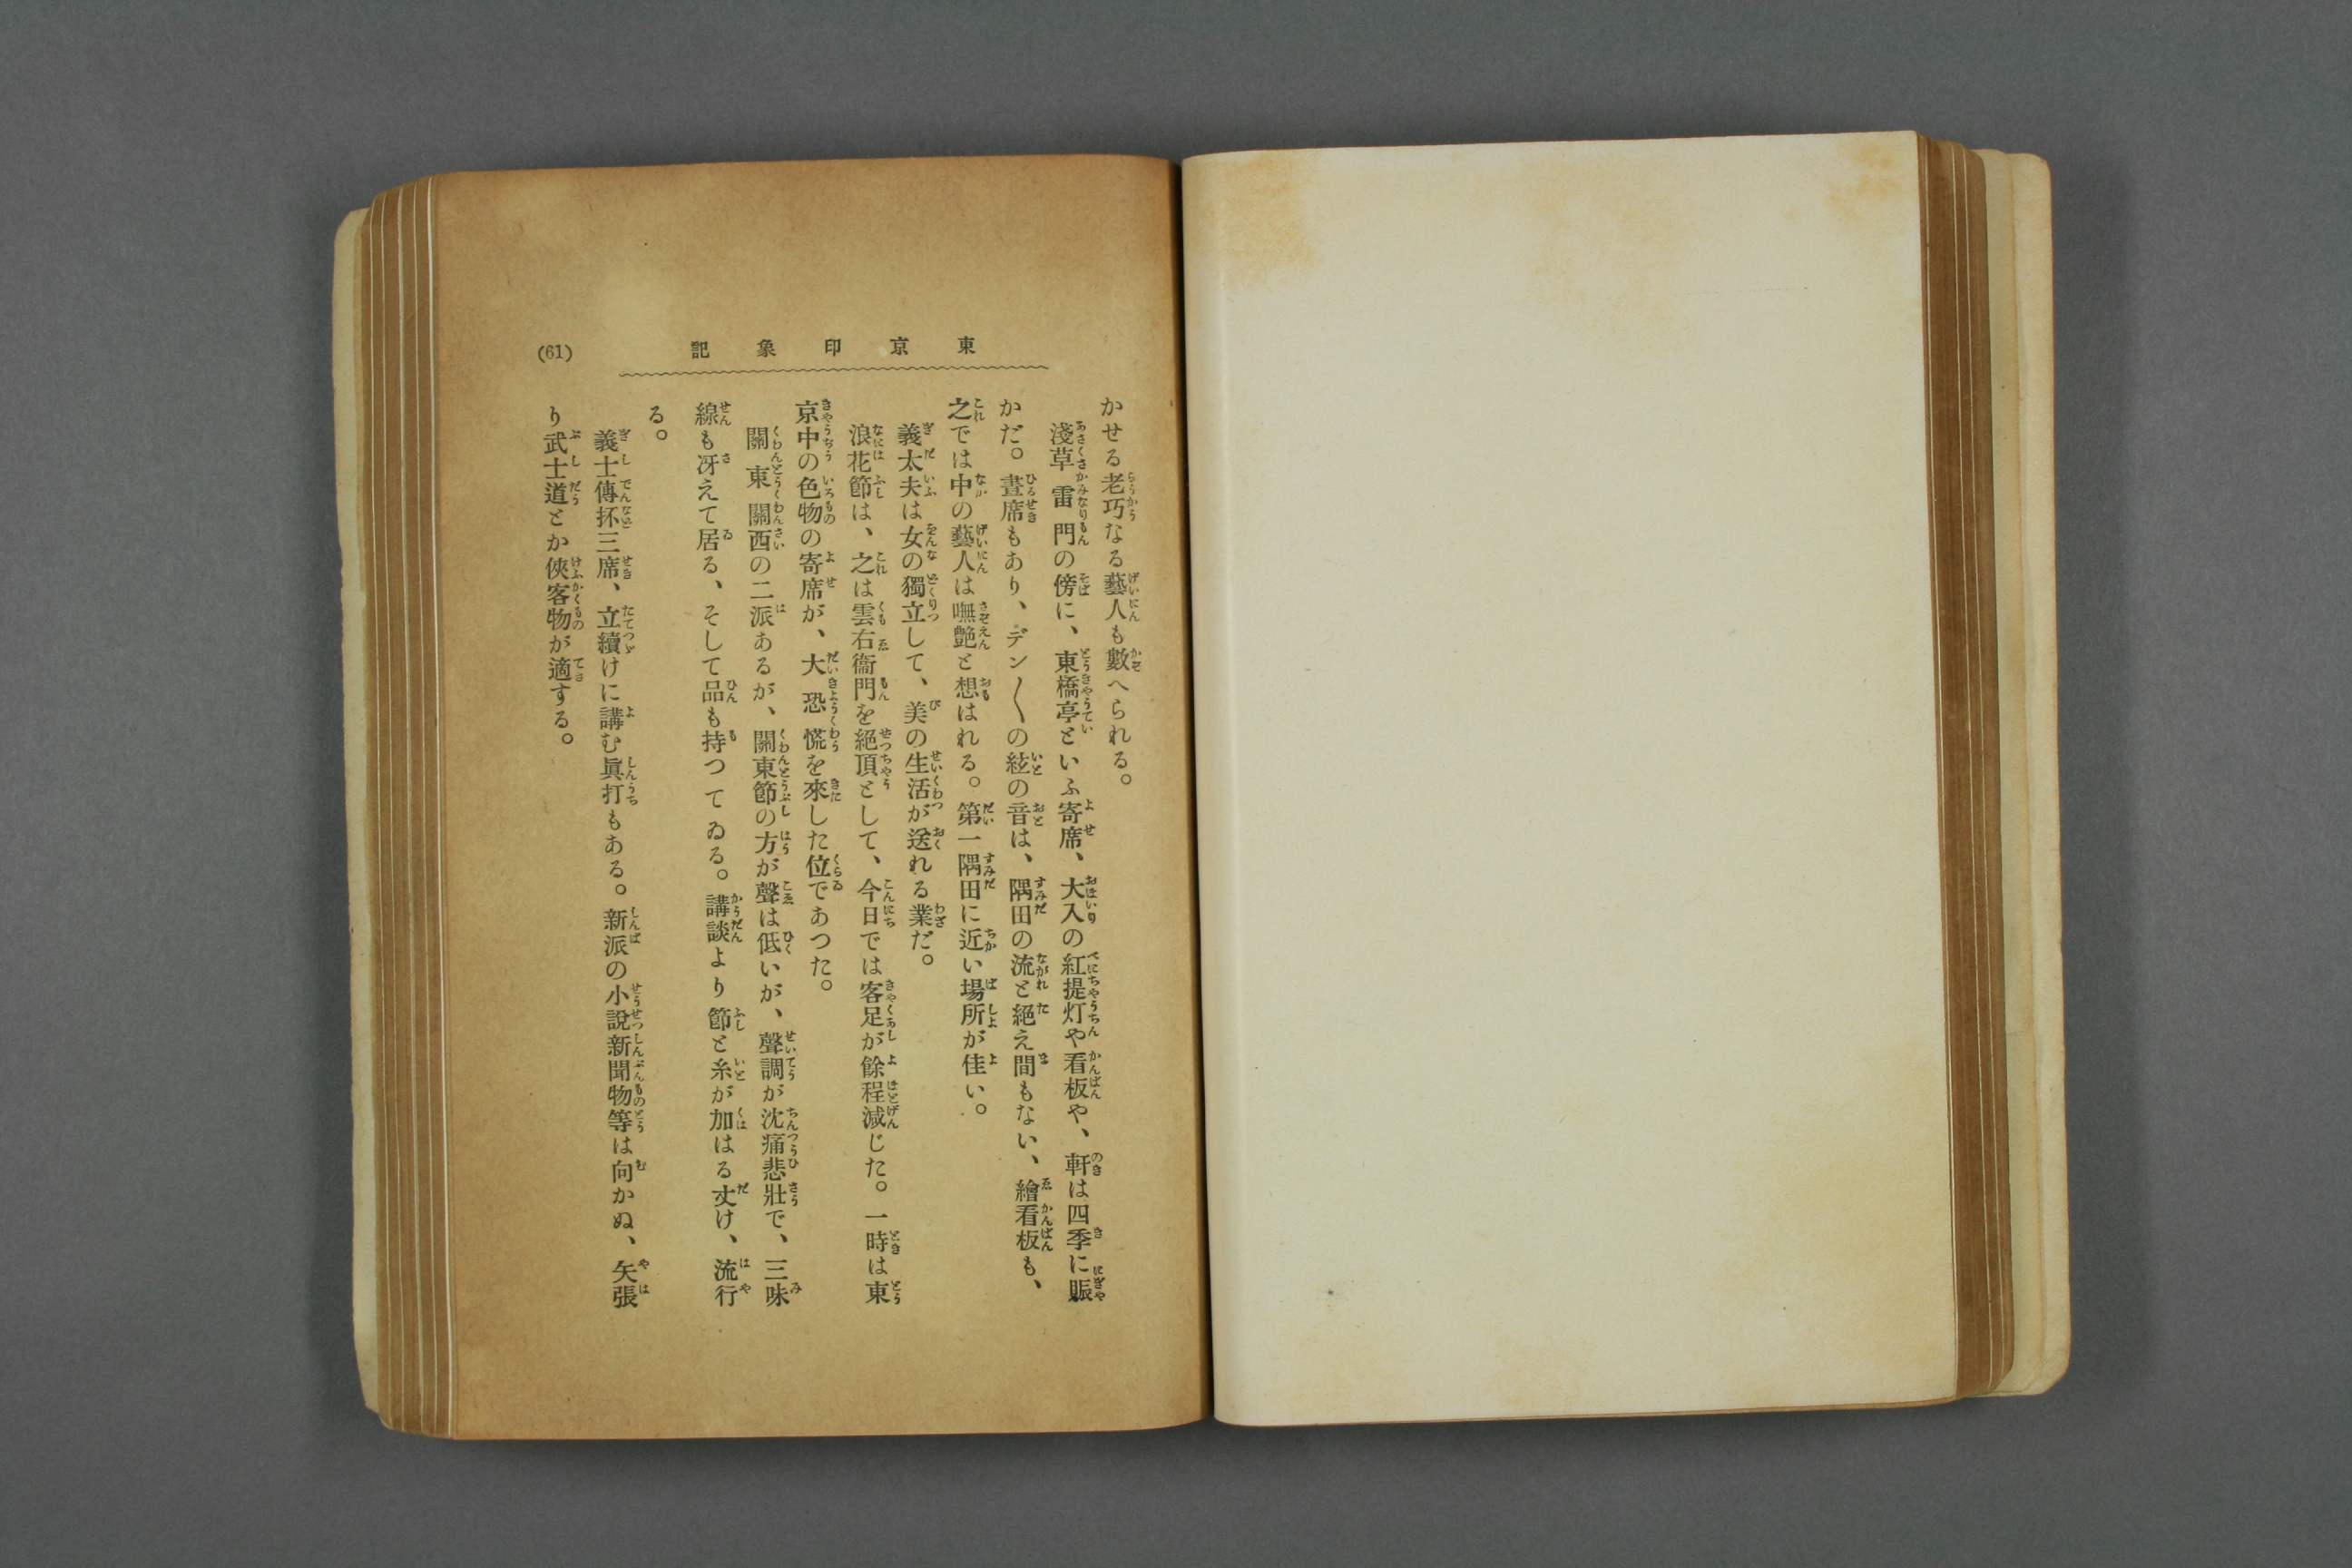 東京印象記
(61)
かせる老巧なる藝人も數へられる。
淺草雷門の傍に、東橋亭といふ寄席、大入の紅提灯や看板や、軒は四季に賑
かだ。晝席もあり、デン〱の絃の音は、隅田の流と絕え間もない、繪看板も、
之では中の藝人は嘸艷と想はれる。第一隅田に近い場所が佳い。
義太夫は女の獨立して、美の生活が送れる業だ。
浪花節は、之は雲右衞門を絕頂として、今日では客足が餘程減じた。一時は東
京中の色物の寄席が、大恐慌を來した位であつた。
關東關西の二派あるが、關東節の方が聲は低いが、聲調が沈痛悲壯で、三味
線も冴えて居る、そして品も持つてゐる。講談より節と糸が加はる丈け、流行
る。
義士傳抔三席、立續けに講む眞打もある。新派の小說新聞物等は向かぬ、矢張
り武士道とか俠客物が適する。